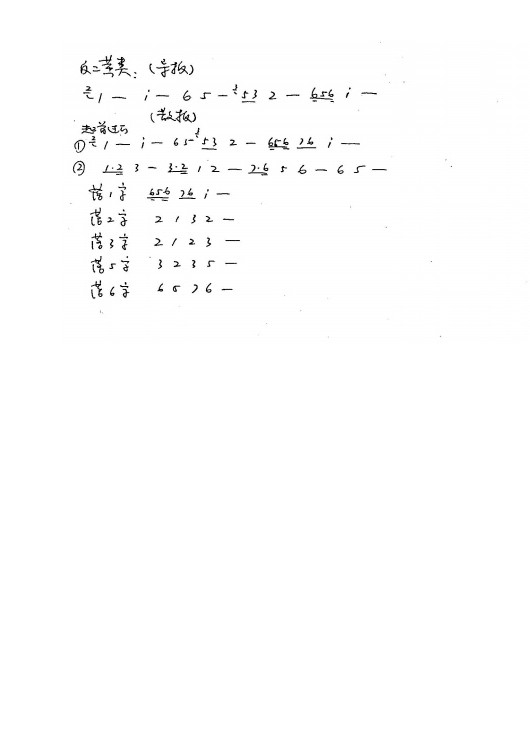 反二黄类：（导板）
2 1 — i — 6 5 — i 5 3 2 — 6 5 6 i —
（散板）
起首过门
① 2 1 — i — 6 5 — i 5 3 2 — 6 5 6 7 6 i —
② 1·2 3 — 3·2 1 2 — 7·6 5 6 — 6 5 —
落1字 6 5 6 7 6 i —
落2字 2 1 3 2 —
落3字 2 1 2 3 —
落5字 3 2 3 5 —
落6字 6 5 7 6 —